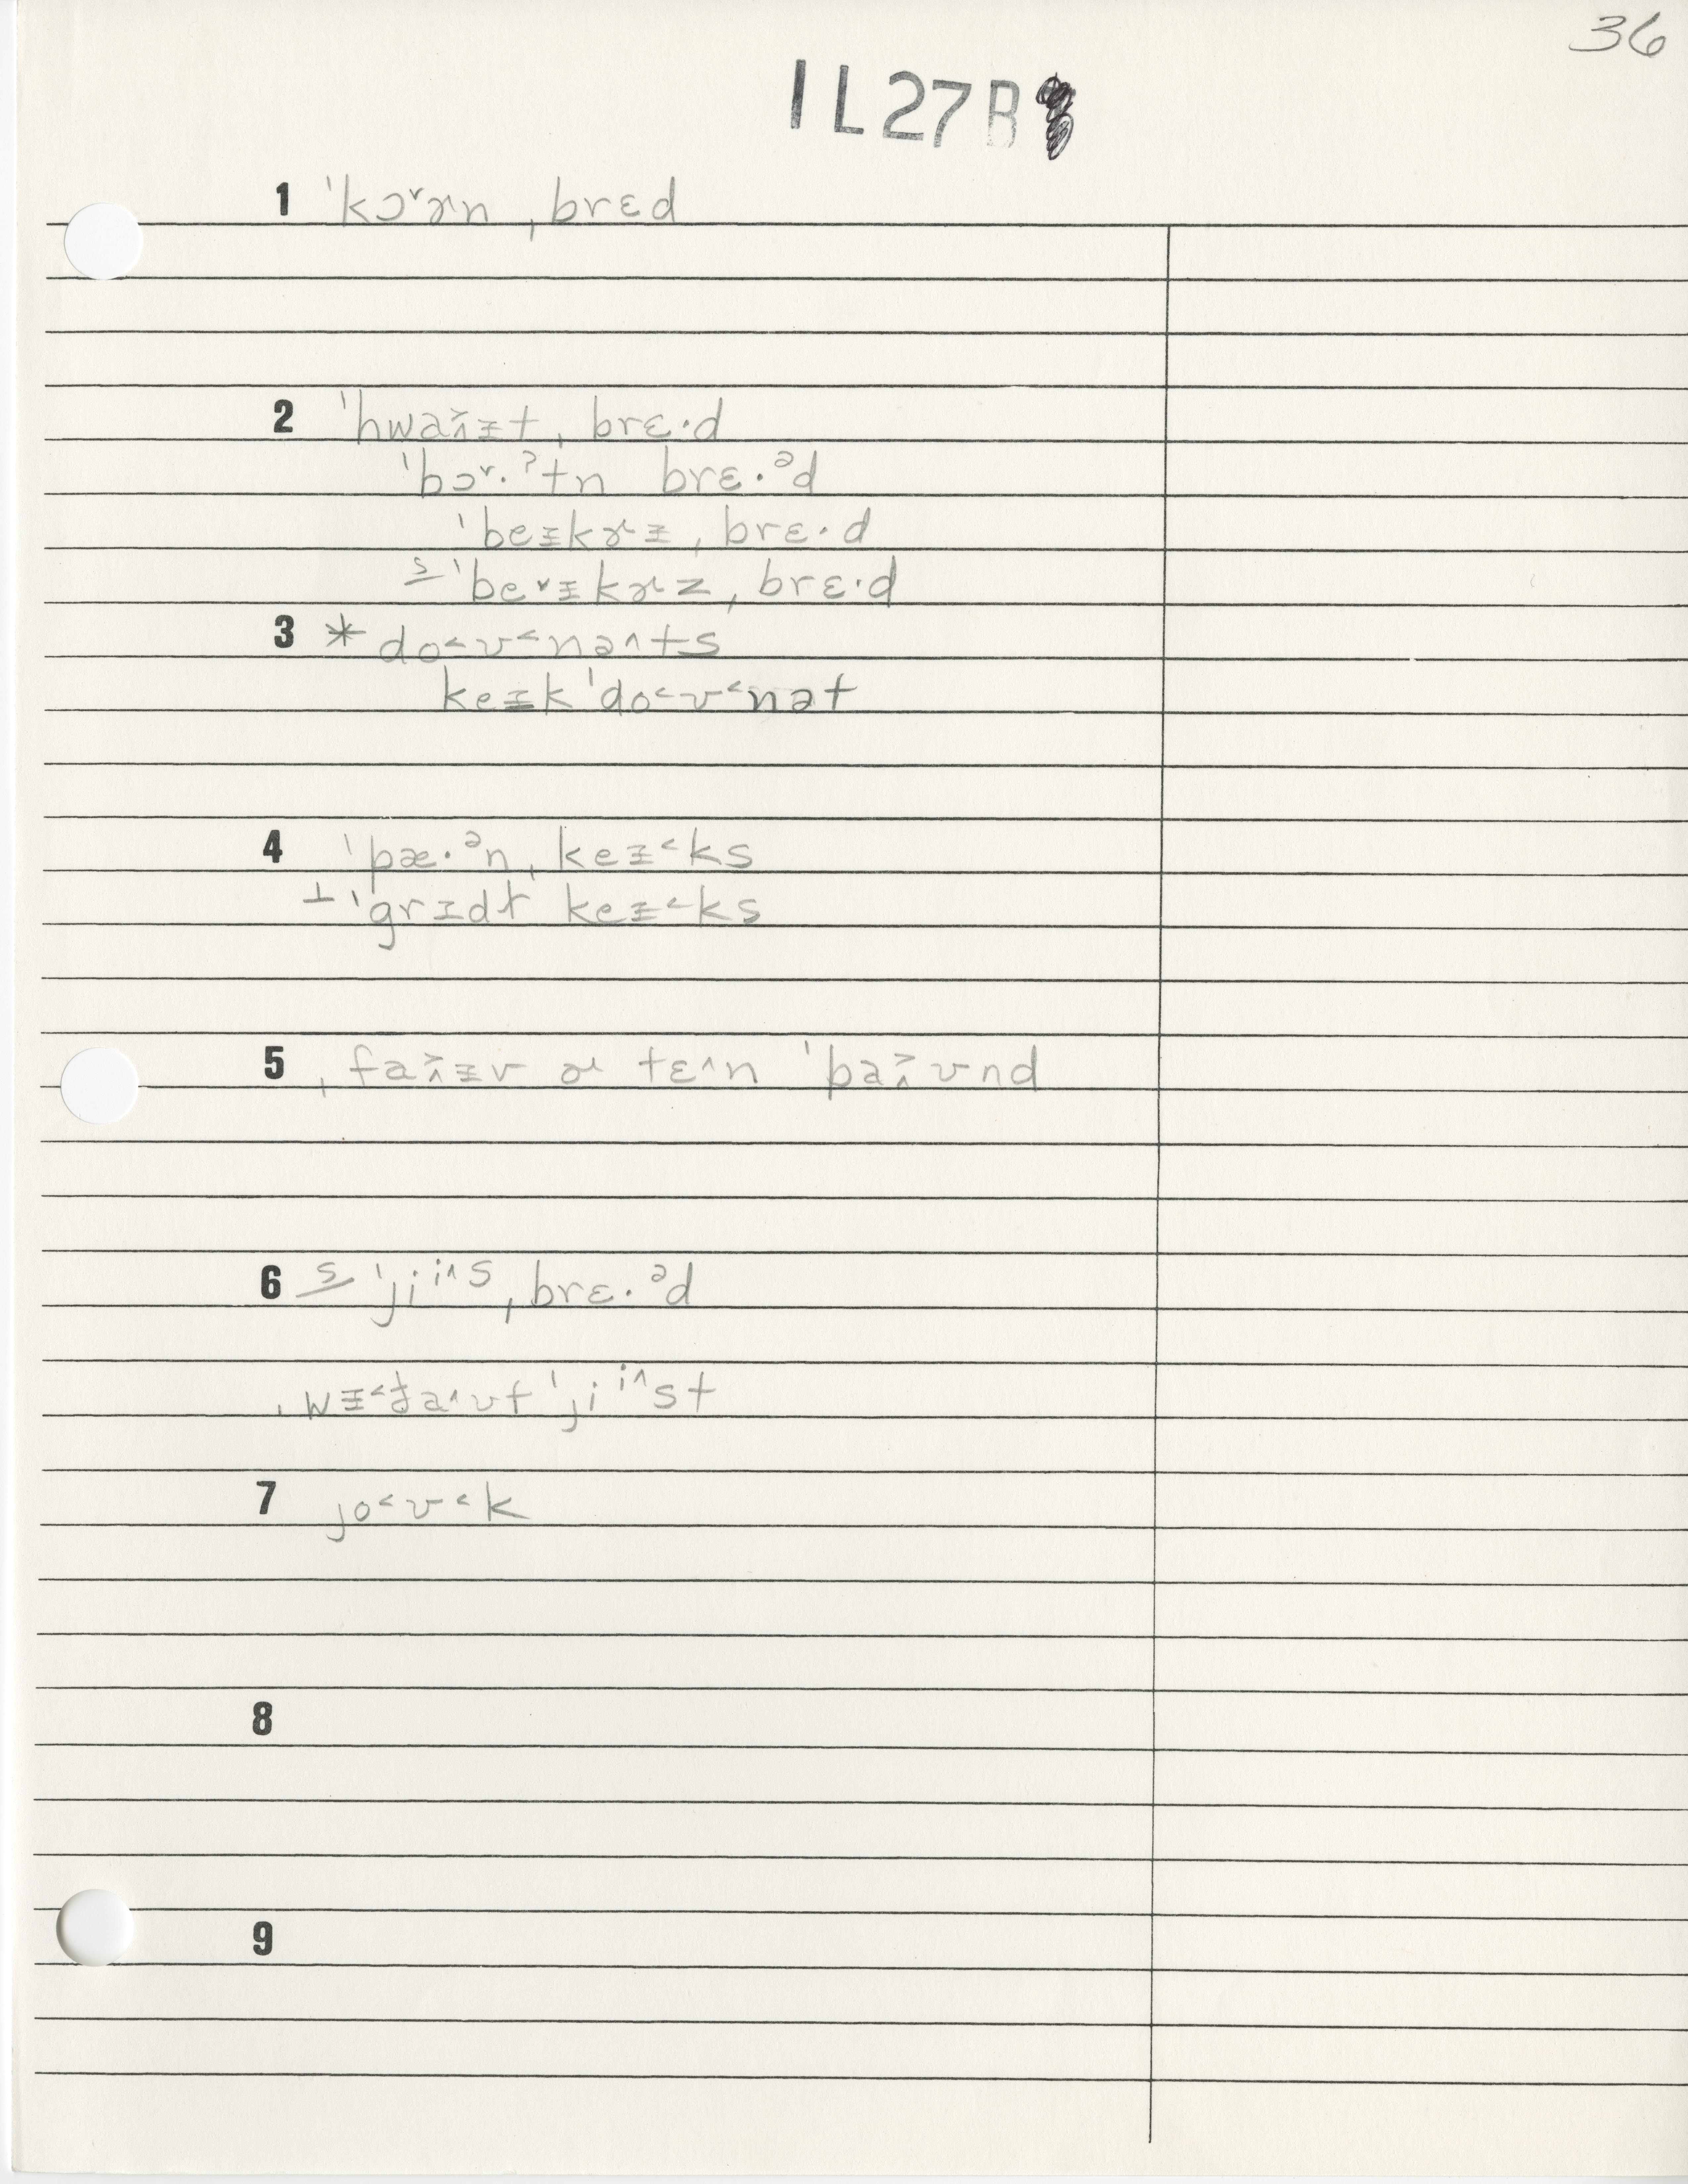 36
IL27B
1 ˈkɔ˅ɚn ˌbrɛd
2 ˈhwaᵻt ˌbrɛ·d
ˈbɔ˅·ˀtn brɛ·ᵊd
ˈbeᵻkɚᵻ ˌbrɛ·d
s ˈbe˅ᵻkɚz ˌbrɛ·d
3 * do˂ʊ˂nə˄ts
keᵻk ˈdo˂ʊ˂nət
4 ˈpæ·ᵊn ˌkeᵻ˂ks
⊥ ˈgrᵻdɫ keᵻ˂ks
5 ˌfa˄˃ᵻv ɚ tɛ˄n ˈpa˄˃ʊnd
6 s ˈjiⁱ˄s ˌbrɛ·ᵊd
ˌwᵻ˂t̬a˄ʊt ˈjiⁱ˄st
7 jo˂ʊ˂k
8
9